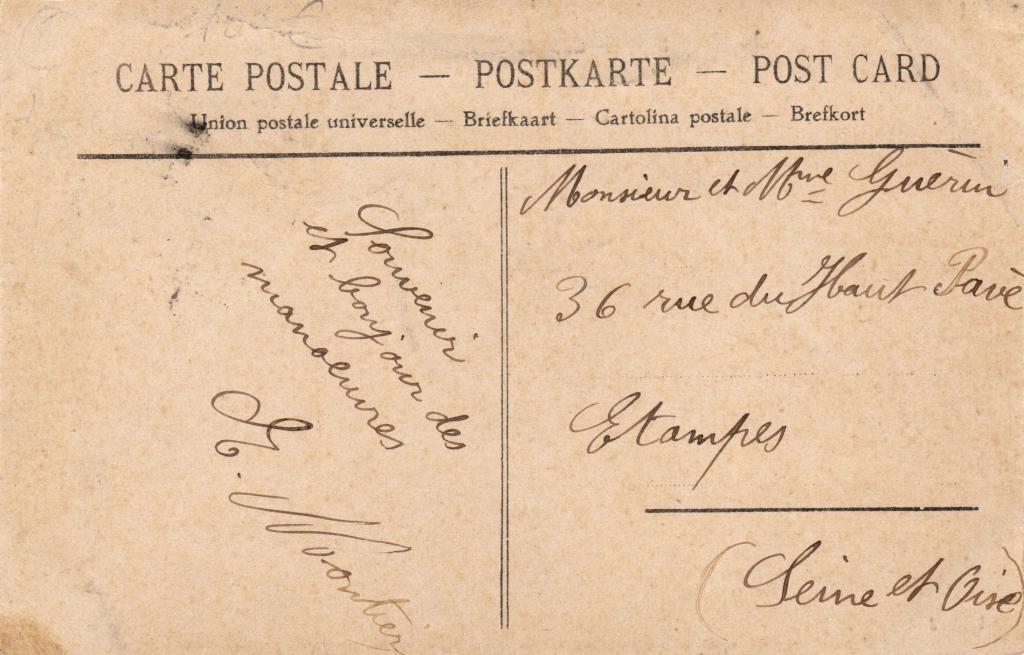 CARTE POSTALE — POSTKARTE — POST CARD
Union postale universelle — Briefkaart — Cartolina postale — Brefkort
Souvenir
et bonjour des
manoeuvres
Monsieur et Mme Guérin
36 rue du Haut Pavé
Etampes
(Seine et Oise)